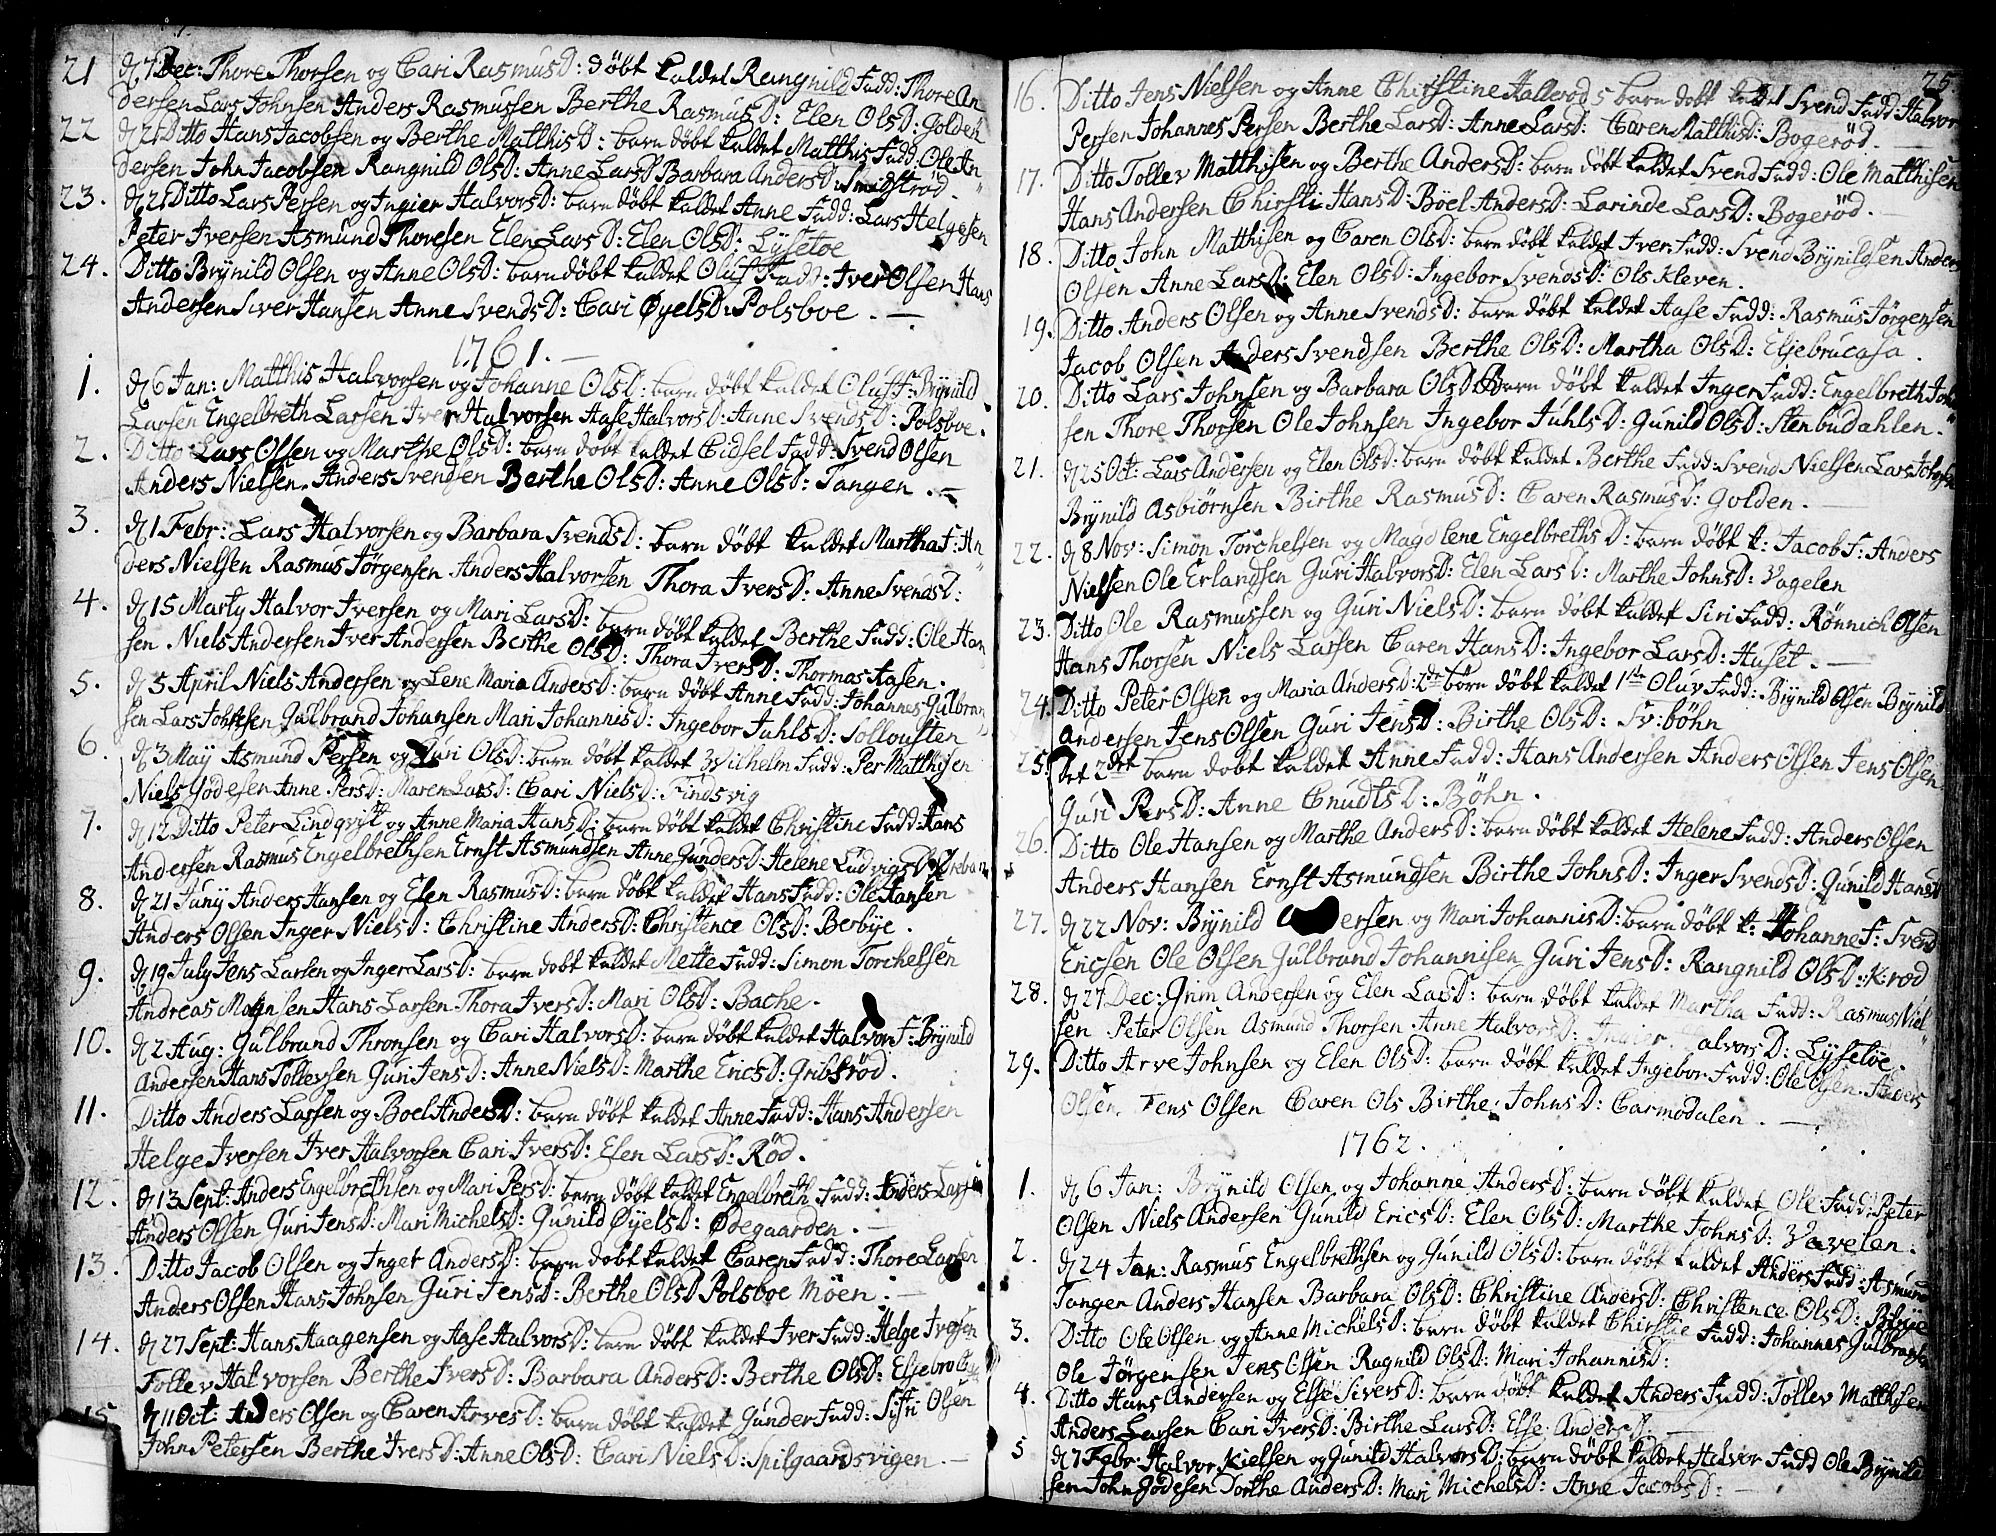 21 d 7 Dec: Thore Thorsen og Cari RasmusD: døbt kaldet Rangnild Fadd: Thore An
dersen Lars Johnsen Anders Rasmussen Berthe RasmusD: Elen OlsD: Golden
22 d 21 Ditto Hans Jacobsen og Berthe MatthisD: barn døbt kaldet Matthis Fadd: Ole An
dersen John Jacobsen Rangnild OlsD: Anne LarsD Barbara AndersD: Smidstrød
23. d 21 Ditto Lars Persen og Ingier HalvorsD: barn døbt kaldet Anne Fadd: Lars Helgesen
Peter Iversen Asmund Thoresen Elen LarsD: Elen OlsD: Lysetoe
24. Ditto Brynild Olsen og Anne OlsD: barn døbt kaldet Oluf Fadd: Iver Olsen Hans
Andersen Siver Hansen Anne SvendsD: Cari ØyelsD: Polsboe. —
1761. —
1. d 6 Jan: Matthis Halvorsen og Johanne OlsD: barn døbt kaldet Oluf F: Brynild
Larsen Engelbreth Larsen Iver Halvorsen Aase HalvorsD: Anne SvendsD: Polsboe.
2. Ditto Lars Olsen og Marthe OlsD: barn døbt kaldet Cidsel Fadd: Svend Olsen
Anders Nielsen Anders Svendsen Berthe OlsD: Anne OlsD: Tangen. —
3. d 1 Febr: Lars Halvorsen og Barbara SvendsD: barn døbt kaldet Martha F: An
ders Nielsen Rasmus Jørgensen Anders Halvorsen Thora IversD: Anne SvendsD:
4. d 15 Marty Halvor Iversen og Mari LarsD: barn døbt kaldet Berthe Fadd: Ole Han
sen. Niels Andersen Iver Andersen Berthe OlsD: Thora IversD: Thormas Aasen.
5. d 5 April Niels Andersen og Lene Maria AndersD: barn døbt Anne Fadd: Johannes Gulbran
sen Lars Johnsen Gulbrand Johansen Mari JohannisD: Ingebor JuhlsD: Sollousten
6 d 3 May Asmund Persen og Guri OlsD: barn døbt kaldet Wilhelm Fadd: Per Matthisen
Niels Godesen Anne PersD: Maren LarsD: Cari NielsD: Findsvig
7. d 12 Ditto Peter Lindqvist og Anne Maria HansD: barn døbt kaldet Christine Fadd: Hans
Andersen Rasmus Engelbrethsen Ernst Asmundsen Anne GundersD: Helene LudvigsD:
8. d 21 Juny Anders Hansen og Elen RasmusD: barn døbt kaldet Hans Fadd: Ole Hansen
Anders Olsen Inger NielsD: Christine AndersD: Christence OlsD: Berbye.
9. d 19 July Jens Larsen og Inger LarsD: barn døbt kaldet Mette Fadd: Simon Torchelsen
Andreas Hans Larsen Thora IversD: Mari OlsD: Bache.
10. d 2 Aug: Gulbrand Thronsen og Cari HalvorsD: barn døbt kaldet Halvor F: Brynild
Andersen Hans Tollevsen Guri JensD: Anne NielsD: Marthe EricsD: Gribsrød.
11. Ditto Anders Larsen og Boel AndersD: barn døbt kaldet Anne Fadd: Hans Andersen
Helge Iversen Iver Halvorsen Cari IversD: Elen LarsD: Rød.
12. d 13 Sept: Anders Engelbrethsen og Mari PersD: barn døbt kaldet Engelbreth Fadd: Anders Larsen
Anders Olsen Guri JensD: Mari MichelsD: Gunild ØyelsD: Ødegaarden. —
13. Ditto Jacob Olsen og Inget AndersD: barn døbt kaldet Caren Fadd: Thore Larsen
Anders Olsen Hans Johnsen Guri JensD: Berthe OlsD Polsboe Möen. —
14. d 27 Sept: Hans Haagensen og Aase HalvorsD: barn døbt kaldet Iver Fadd: Helge Iversen
Tollev Halvorsen Berthe IversD: Barbara AndersD: Berthe OlsD:
15 d 11 Oct: Anders Olsen og Caren ArvesD: barn døbt kaldet Gunder Fadd: Siffri Olsen
John Petersen Berthe IversD: Anne OlsD: Cari NielsD: Spilgaardsvigen. —
25
16. Ditto Jens Nielsen og Anne Chirstine Hallerød barn døbt kaldet Svend Fadd: Halvor
Persen Johannes Persen Berthe LarsD: Anne LarsD: Caren MatthisD: Bogerød. —
17. Ditto Tollev Matthisen og Berthe AndersD: barn døbt kaldet Svend Fadd: Ole Matthisen
Hans Andersen Chirsti HansD: Böel AndersD: Larinde LarsD: Bogerød. —
18. Ditto John Matthisen og Caren OlsD: barn døbt kaldet Iver Fadd: Svend Brynildsen Anders
Olsen Anne LarsD: Elen OlsD: Ingebor SvendsD: Ols Kleven.
19. Ditto Anders Olsen og Anne SvendsD: barn døbt kaldet Aase Fadd: Rasmus Jørgensen
Jacob Olsen Anders Svendsen Berthe OlsD: Martha OlsD: Eljebrucasa.
20. Ditto Lars Johnsen og Barbara OlsD: Barn døbt kaldet Inger Fadd: Engelbreth John
sen Thore Thorsen Ole Johnsen Ingebor JuhlsD: Gunild OlsD: Stenbudahlen.
21. d 25 Oct: Lars Andersen og Elen OlsD: barn døbt kaldet Berthe Fadd: Svend Nielsen Lars Johnsen
Brynild Asbiörnsen Birthe RasmusD: Caren RasmusD: Golden. —
22. d 8 Nov: Simon Torchelsen og Magdlene EngelbrethsD: barn døbt k: Jacob F: Anders
Nielsen Ole Erlandsen Guri HalvorsD: Elen LarsD: Marthe JohnsD: Vagelen
23. Ditto Ole Rasmussen og Guri NielsD: barn døbt kaldet Siri Fadd: Rönnich Olsen
Hans Thorsen Niels Larsen Caren HansD: Ingebor LarsD: Huset. —
24. Ditto Peter Olsen og Maria AndersD: 2de børn døbt kaldet 1ste Oluv Fadd: Brynild Olsen Brynild
Andersen Jens Olsen Guri JensD: Birthe OlsD: Sv: böhn
25. Det 2det barn døbt kaldet Anne Fadd: Hans Andersen Anders Olsen Jens Olsen
Guri PersD: Anne CnudtsD: Böhn.
26. Ditto Ole Hansen og Marthe AndersD: barn døbt kaldet Helene Fadd: Anders Olsen
Anders Hansen Ernst Asmundsen Birthe JohnsD: Inger SvendsD: Gunild HansD
27. d 22 Nov: Brynild ersen og Mari JohannisD: barn døbt k: Johanne F: Svend
Ericsen Ole Olsen Gulbrand Johannisen Guri JensD: Rangnild OlsD: K: rød
28. d 27 Dec: Grim Andersen og Elen LarsD: barn døbt kaldet Martha Fadd: Rasmus Niel
sen Peter Olsen Asmund Thorsen Anne HalvorsD: Ingier HalvorsD: Lyseloe.
29. Ditto Arve Johnsen og Elen OlsD: barn døbt kaldet Ingebor Fadd: Ole Olsen Anders
Olsen Jens Olsen Caren Ols Birthe JohnsD: Carmodalen. —
1762.
1. d 6 Jan: Brynild Olsen og Johanne AndersD: barn døbt kaldet Ole Fadd: Peter
Olsen Niels Andersen Gunild EricsD: Elen OlsD: Marthe JohnsD: Vavelen.
2. d 24 Jan: Rasmus Engelbrethsen og Gunild OlsD: barn døbt kaldet Anders Fadd: Asmund
Tangen Anders Hansen Barbara OlsD: Christine AndersD: Christence OlsD:
3. Ditto Ole Olsen og Anne MichelsD: barn døbt kaldet Chirstie Fadd: Johannes Gulbrandsen
Ole Jörgensen Jens Olsen Ragnild OlsD: Mari JohannisD:
4. Ditto Hans Andersen og Else SiversD: barn døbt kaldet Anders Fadd: Tollev Matthisen
Anders Larsen Cari IversD: Birthe LarsD: Else AndersD: —
5 d 7 Febr: Halvor Kielsen og Gunild HalvorsD: barn døbt kaldet Halvor Fadd Ole Brynild
sen John Godesen Dorthe AndersD: Mari MichelsD: Anne JacobsD: —